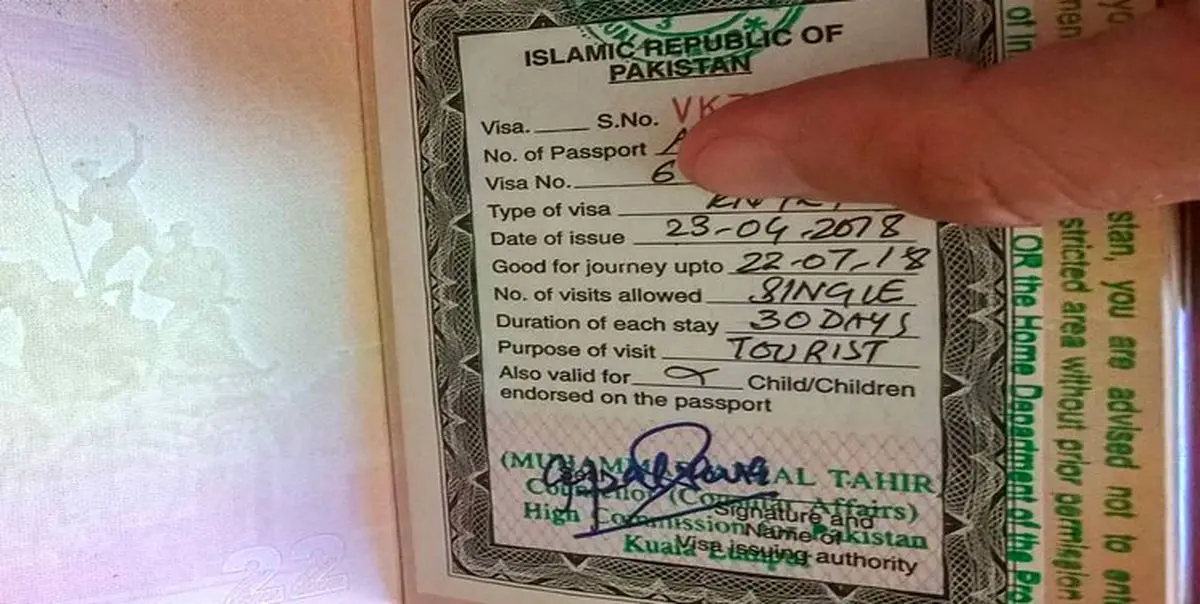 ISLAMIC REPUBLIC OF
PAKISTAN
Visa. S.No. VK
No. of Passport A
Visa No. 6
Type of visa ENTRY
Date of issue 23-04-2018
Good for journey upto 22-07-18
No. of visits allowed SINGLE
Duration of each stay 30 DAYS
Purpose of visit TOURIST
Also valid for Child/Children
endorsed on the passport
(MUHAMM AL TAHIR
Counsellor (Consular Affairs)
Signature and
High Commission for Pakistan
Name of
Kuala Lumpur
Visa issuing authority
stan, you are advised not to ent
stricted area without prior permission
OR the Home Department of the Pro
22